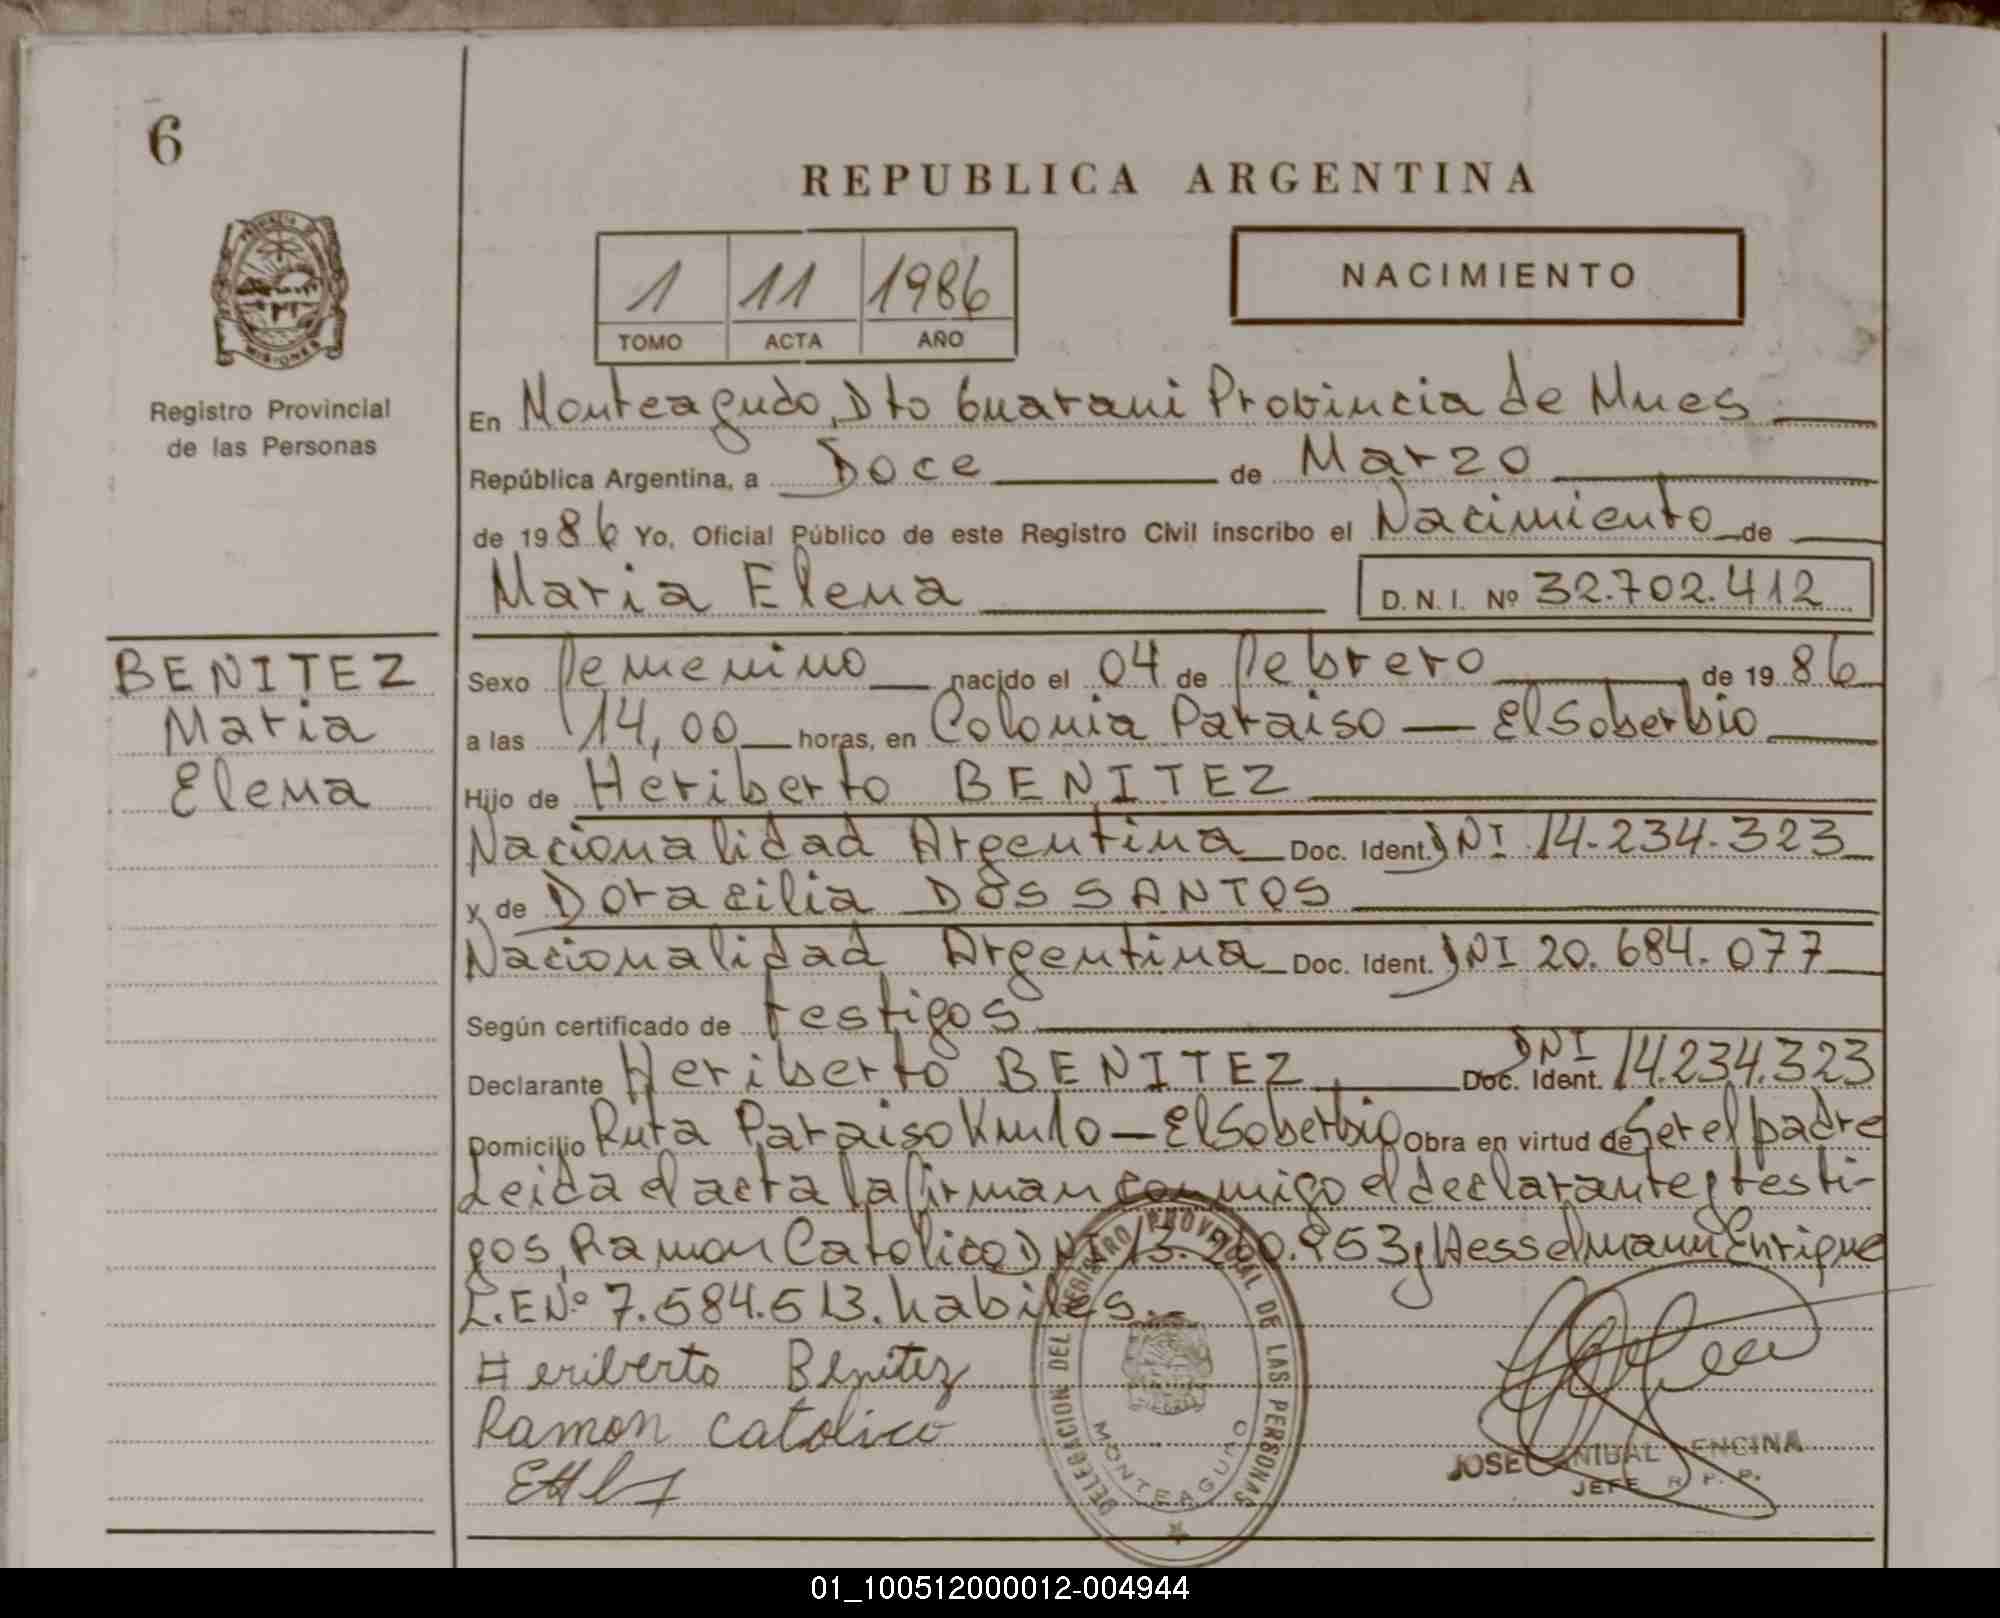 6
REPUBLICA ARGENTINA
1 11 1986
TOMO ACTA AÑO
NACIMIENTO
MISIONES
Registro Provincial
de las Personas
En Monteagudo, Dto Guarani Provincia de Mnes
República Argentina, a Doce de Marzo
de 1986 Yo, Oficial Público de este Registro Civil inscribo el Nacimiento de
Maria Elena D. N. I. Nº 32.702.412
BENITEZ
Maria
Elena
Sexo femenino nacido el 04 de febrero de 1986
a las 14,00 horas, en Colonia Paraiso — El Soberbio
Hijo de Heriberto BENITEZ
Nacionalidad Argentina Doc. Ident. DNI 14.234.323
y de Doracilia DOS SANTOS
Nacionalidad Argentina Doc. Ident. DNI 20.684.077
Según certificado de testigos
Declarante Heriberto BENITEZ Doc. Ident. DNI 14.234.323
Domicilio Ruta Paraiso Km 10 — El Soberbio Obra en virtud de Ser el padre
Leida el acta la firman conmigo el declarante y testi-
gos, Ramon Catolico DNI y Hesselmann Enrique
L.E Nº 7.584.513. habiles.
Heriberto Benitez
Ramon catolico
DELEGACION DEL REGISTRO PROVINCIAL DE LAS PERSONAS
MONTEAGUDO
JOSE ANIBAL ENCINA
JEFE R. P. P.
01_100512000012-004944